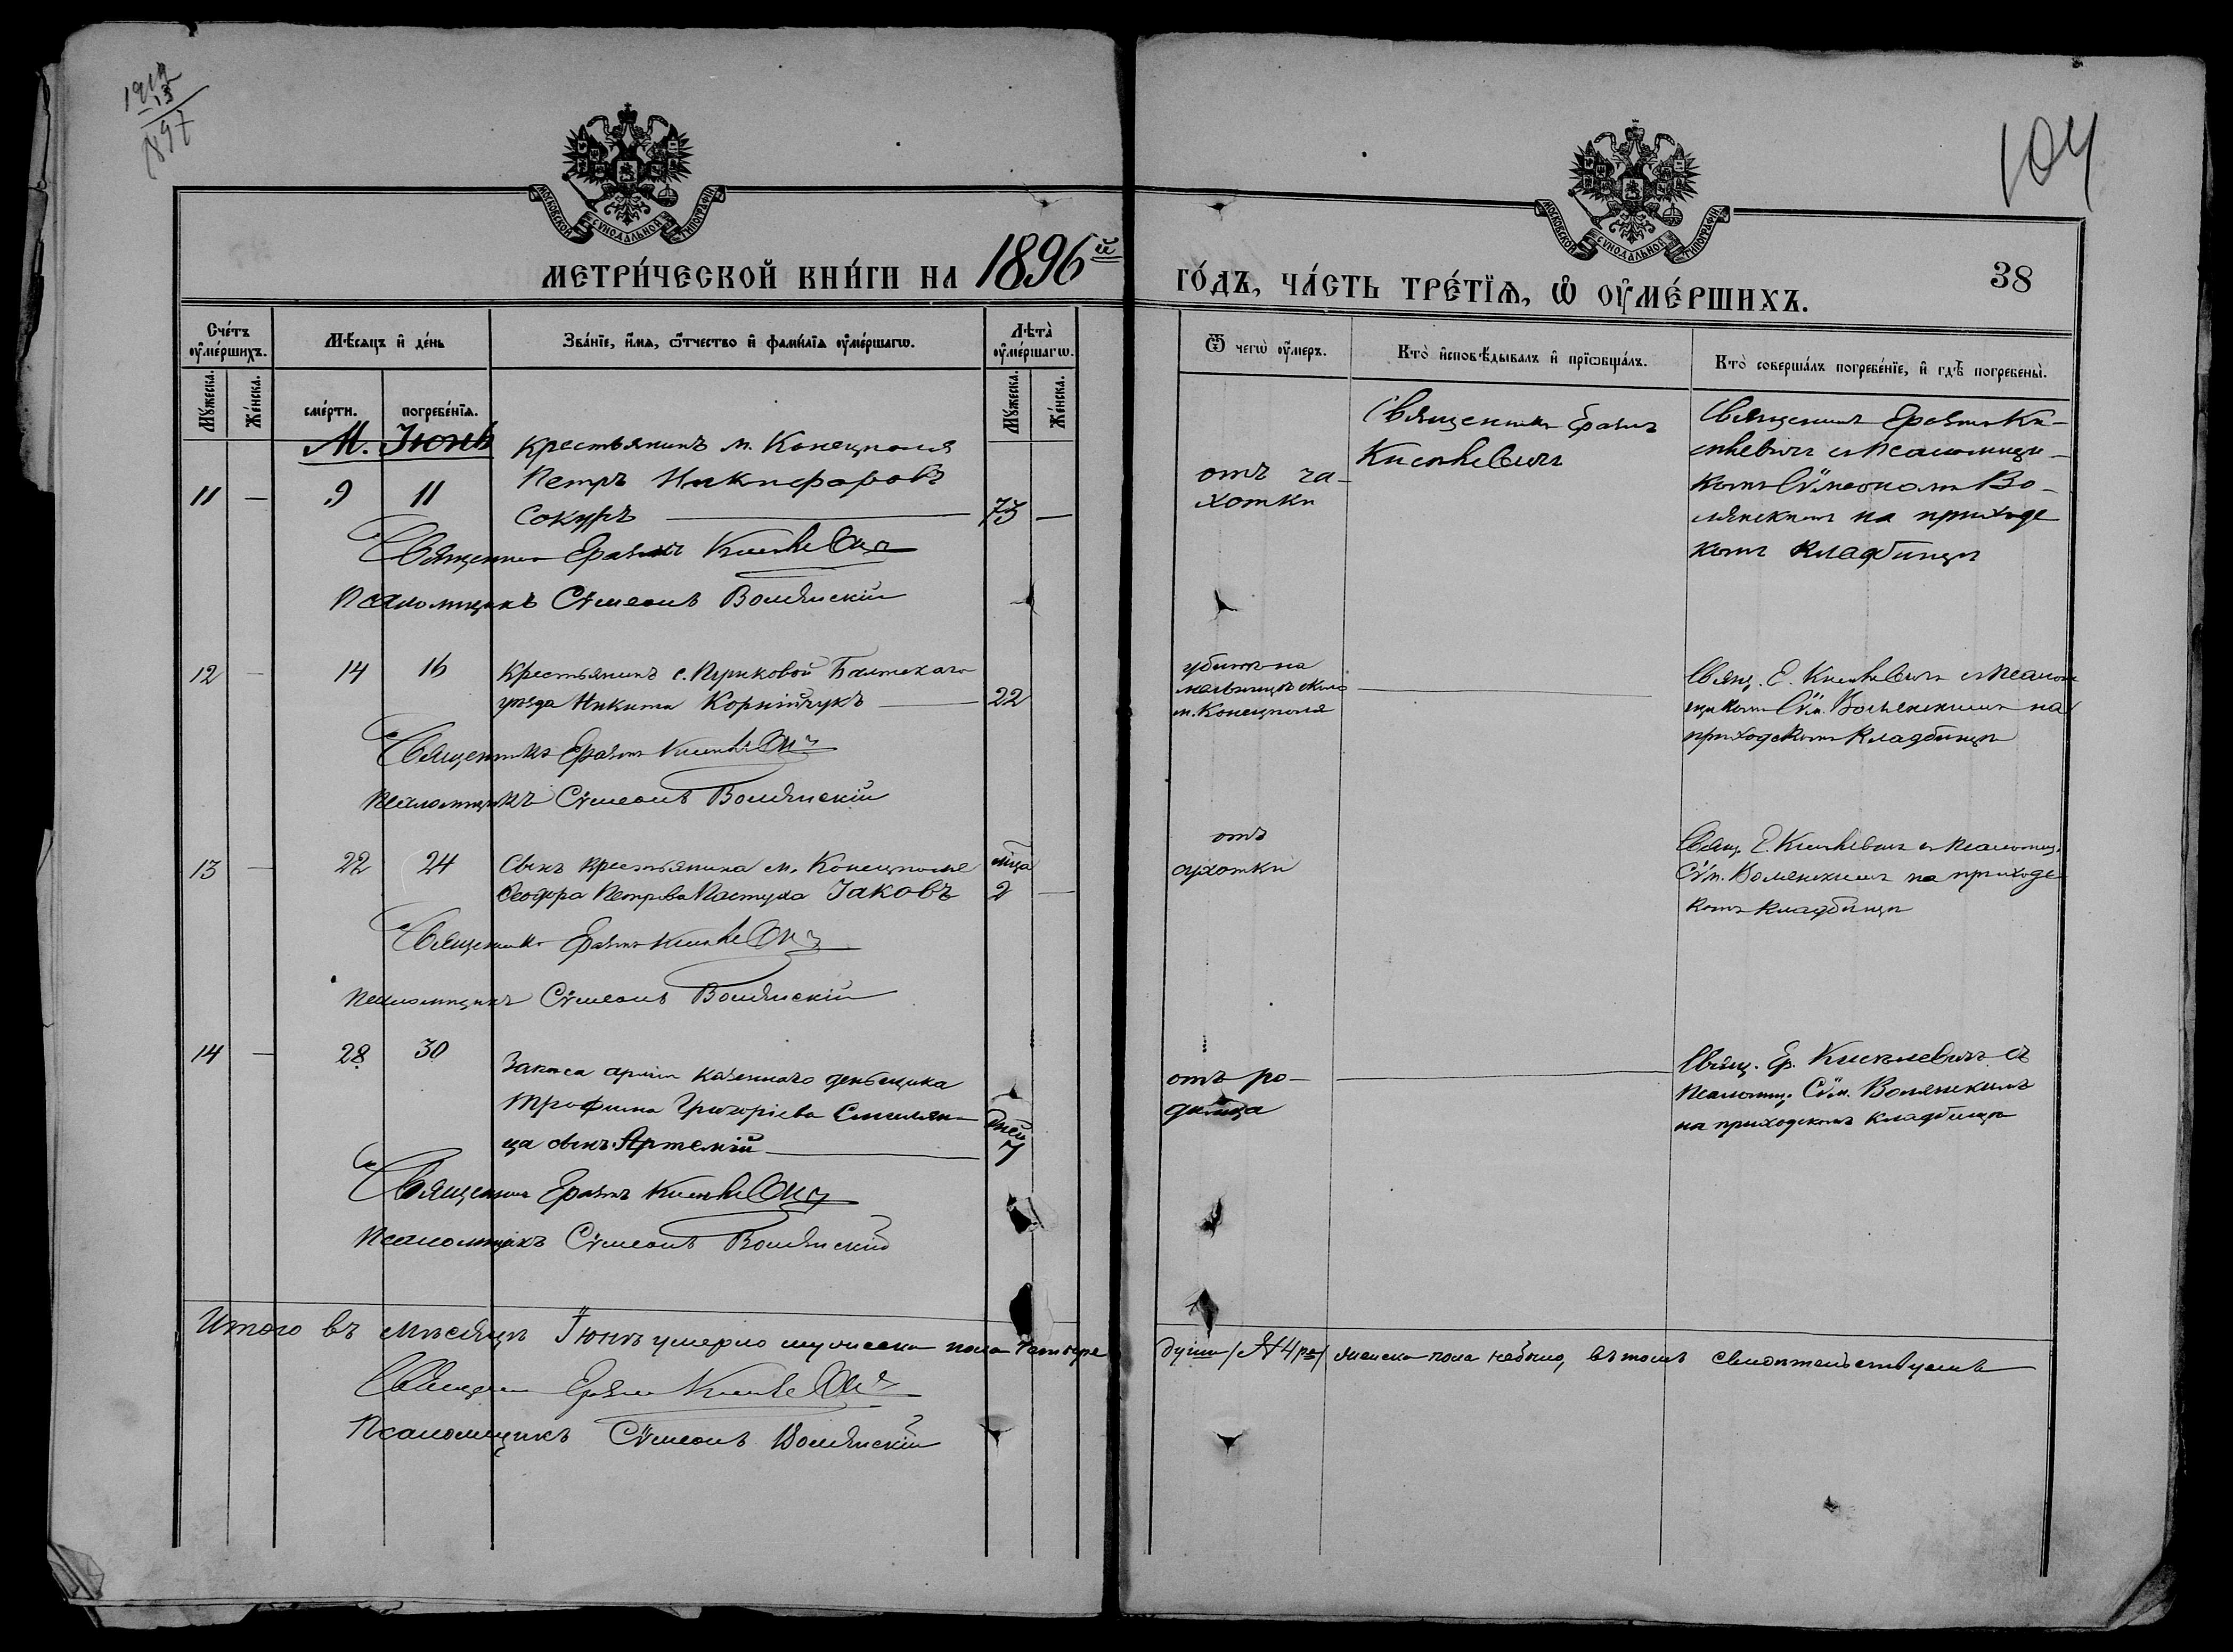 1912
13
1897
104
МОСКОВСКОЙ СѴНОДАЛЬНОЙ ТИПОГРАФІИ
МОСКОВСКОЙ СѴНОДАЛЬНОЙ ТИПОГРАФІИ
МЕТРИ́ЧЕСКОЙ КНИ́ГИ НА 1896й
ГО́ДЪ, ЧА́СТЬ ТРЕ́ТЇѦ, Ѡ҆ ОУ҆МЕ́РШИХЪ.
38
Сче́тъ оу҆ме́ршихъ.
Мѣ́сяцъ и҆ де́нь
Зва́нїе, и҆́мѧ, ѻ҆́тчество и҆ фами́лїа оу҆ме́ршагѡ.
Лѣта̀ оу҆ме́ршагѡ.
Мꙋ́жеска.
Же́нска.
сме́рти.
погребе́нїѧ.
Мꙋ́жеска.
Же́нска.
Ѿ чегѡ̀ оу҆́меръ.
Кто̀ и҆сповѣ́дывалъ и҆ прїѡбща́лъ.
Кто̀ соверша́лъ погребе́нїе, и҆ гдѣ̀ погребены̀.
М. Іюнь
11 — 9 11
Крестьянинъ м. Конецполя
Петръ Никифоровъ
Сокуръ — 75 —
Священникъ Еразмъ Кисілевичъ
Псаломщикъ Сѵмеонъ Волянскій
отъ ча-
хотки
Священникъ Еразмъ
Кисілевичъ
Священникъ Еразмъ Ки-
сілевичъ съ псаломщи-
комъ Сѵмеономъ Во-
лянскимъ на приходс
комъ кладбищѣ
12 — 14 16
Крестьянинъ с. Пужковой Балтскаго
уѣзда Никита Корнійчукъ — 22
Священникъ Еразмъ Кисілевичъ
Псаломщикъ Сѵмеонъ Волянскій
убитъ на
мельницѣ около
м. Конецполя
—
Свящ. Е. Кисілевичъ съ псалом
щикомъ Сѵм. Волянскимъ на
приходскомъ кладбищѣ
13 — 22 24
Сынъ крестьянина м. Конецполя
Ѳеодора Петрова Пастуха Іаковъ
мца
2 —
Священникъ Еразмъ Кисілевичъ
Псаломщикъ Сѵмеонъ Волянскій
отъ
сухотки
Свящ. Е. Кисілевичъ съ псаломщ.
Сѵм. Волянскимъ на приходс
комъ кладбищѣ
14 — 28 30
Запаса арміи казеннаго деньщика
Трофима Григоріева Смилян-
ца сынъ Артемій —
дней
7
Священникъ Еразмъ Кисілевичъ
Псаломщикъ Сѵмеонъ Волянскій
отъ ро-
димца
—
Свящ. Ер. Кисілевичъ съ
псаломщ. Сѵм. Волянскимъ
на приходскомъ кладбищѣ
Итого въ мѣсяцѣ Іюнѣ умерло мужеска пола четыре
души /№ 4ре/ женска пола небыло, въ томъ свидѣтельствуемъ
Священникъ Еразмъ Кисілевичъ
Псаломщикъ Сѵмеонъ Волянскій